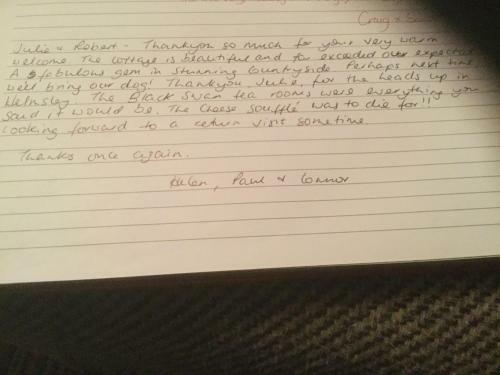 Craig &
Julie & Robert - Thankyou so much for your very warm
welcome. The cottage is beautiful and far exceeded over expectat
A fabulous gem in stunning countryside. Perhaps next time
we'll bring our dog! Thankyou, Julie, for the heads up in
Helmsley. The Black Swan tea rooms were everything you
said it would be. The cheese soufflé was to die for!!
Looking forward to a return visit sometime.
Thanks once again.
Helen, Paul & Connor